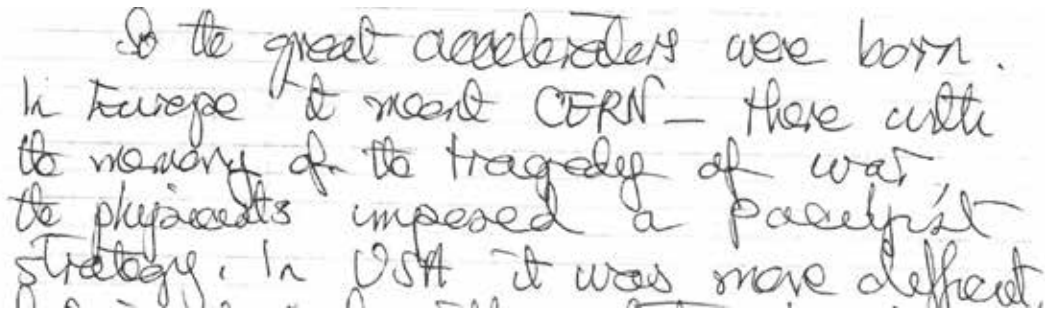 So the great accelerators were born.
In Europe it meant CERN – there with
the memory of the tragedy of war,
the physicists imposed a pacifist
strategy. In USA it was more difficult,